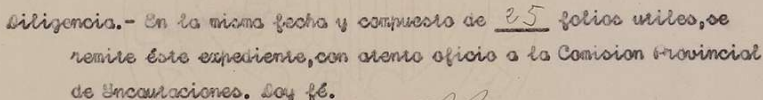 Diligencia.- En la misma fecha y compuesto de 25 folios utiles,se
remite éste expediente,con atento oficio a la Comision Provincial
de Incautaciones. Doy fé.